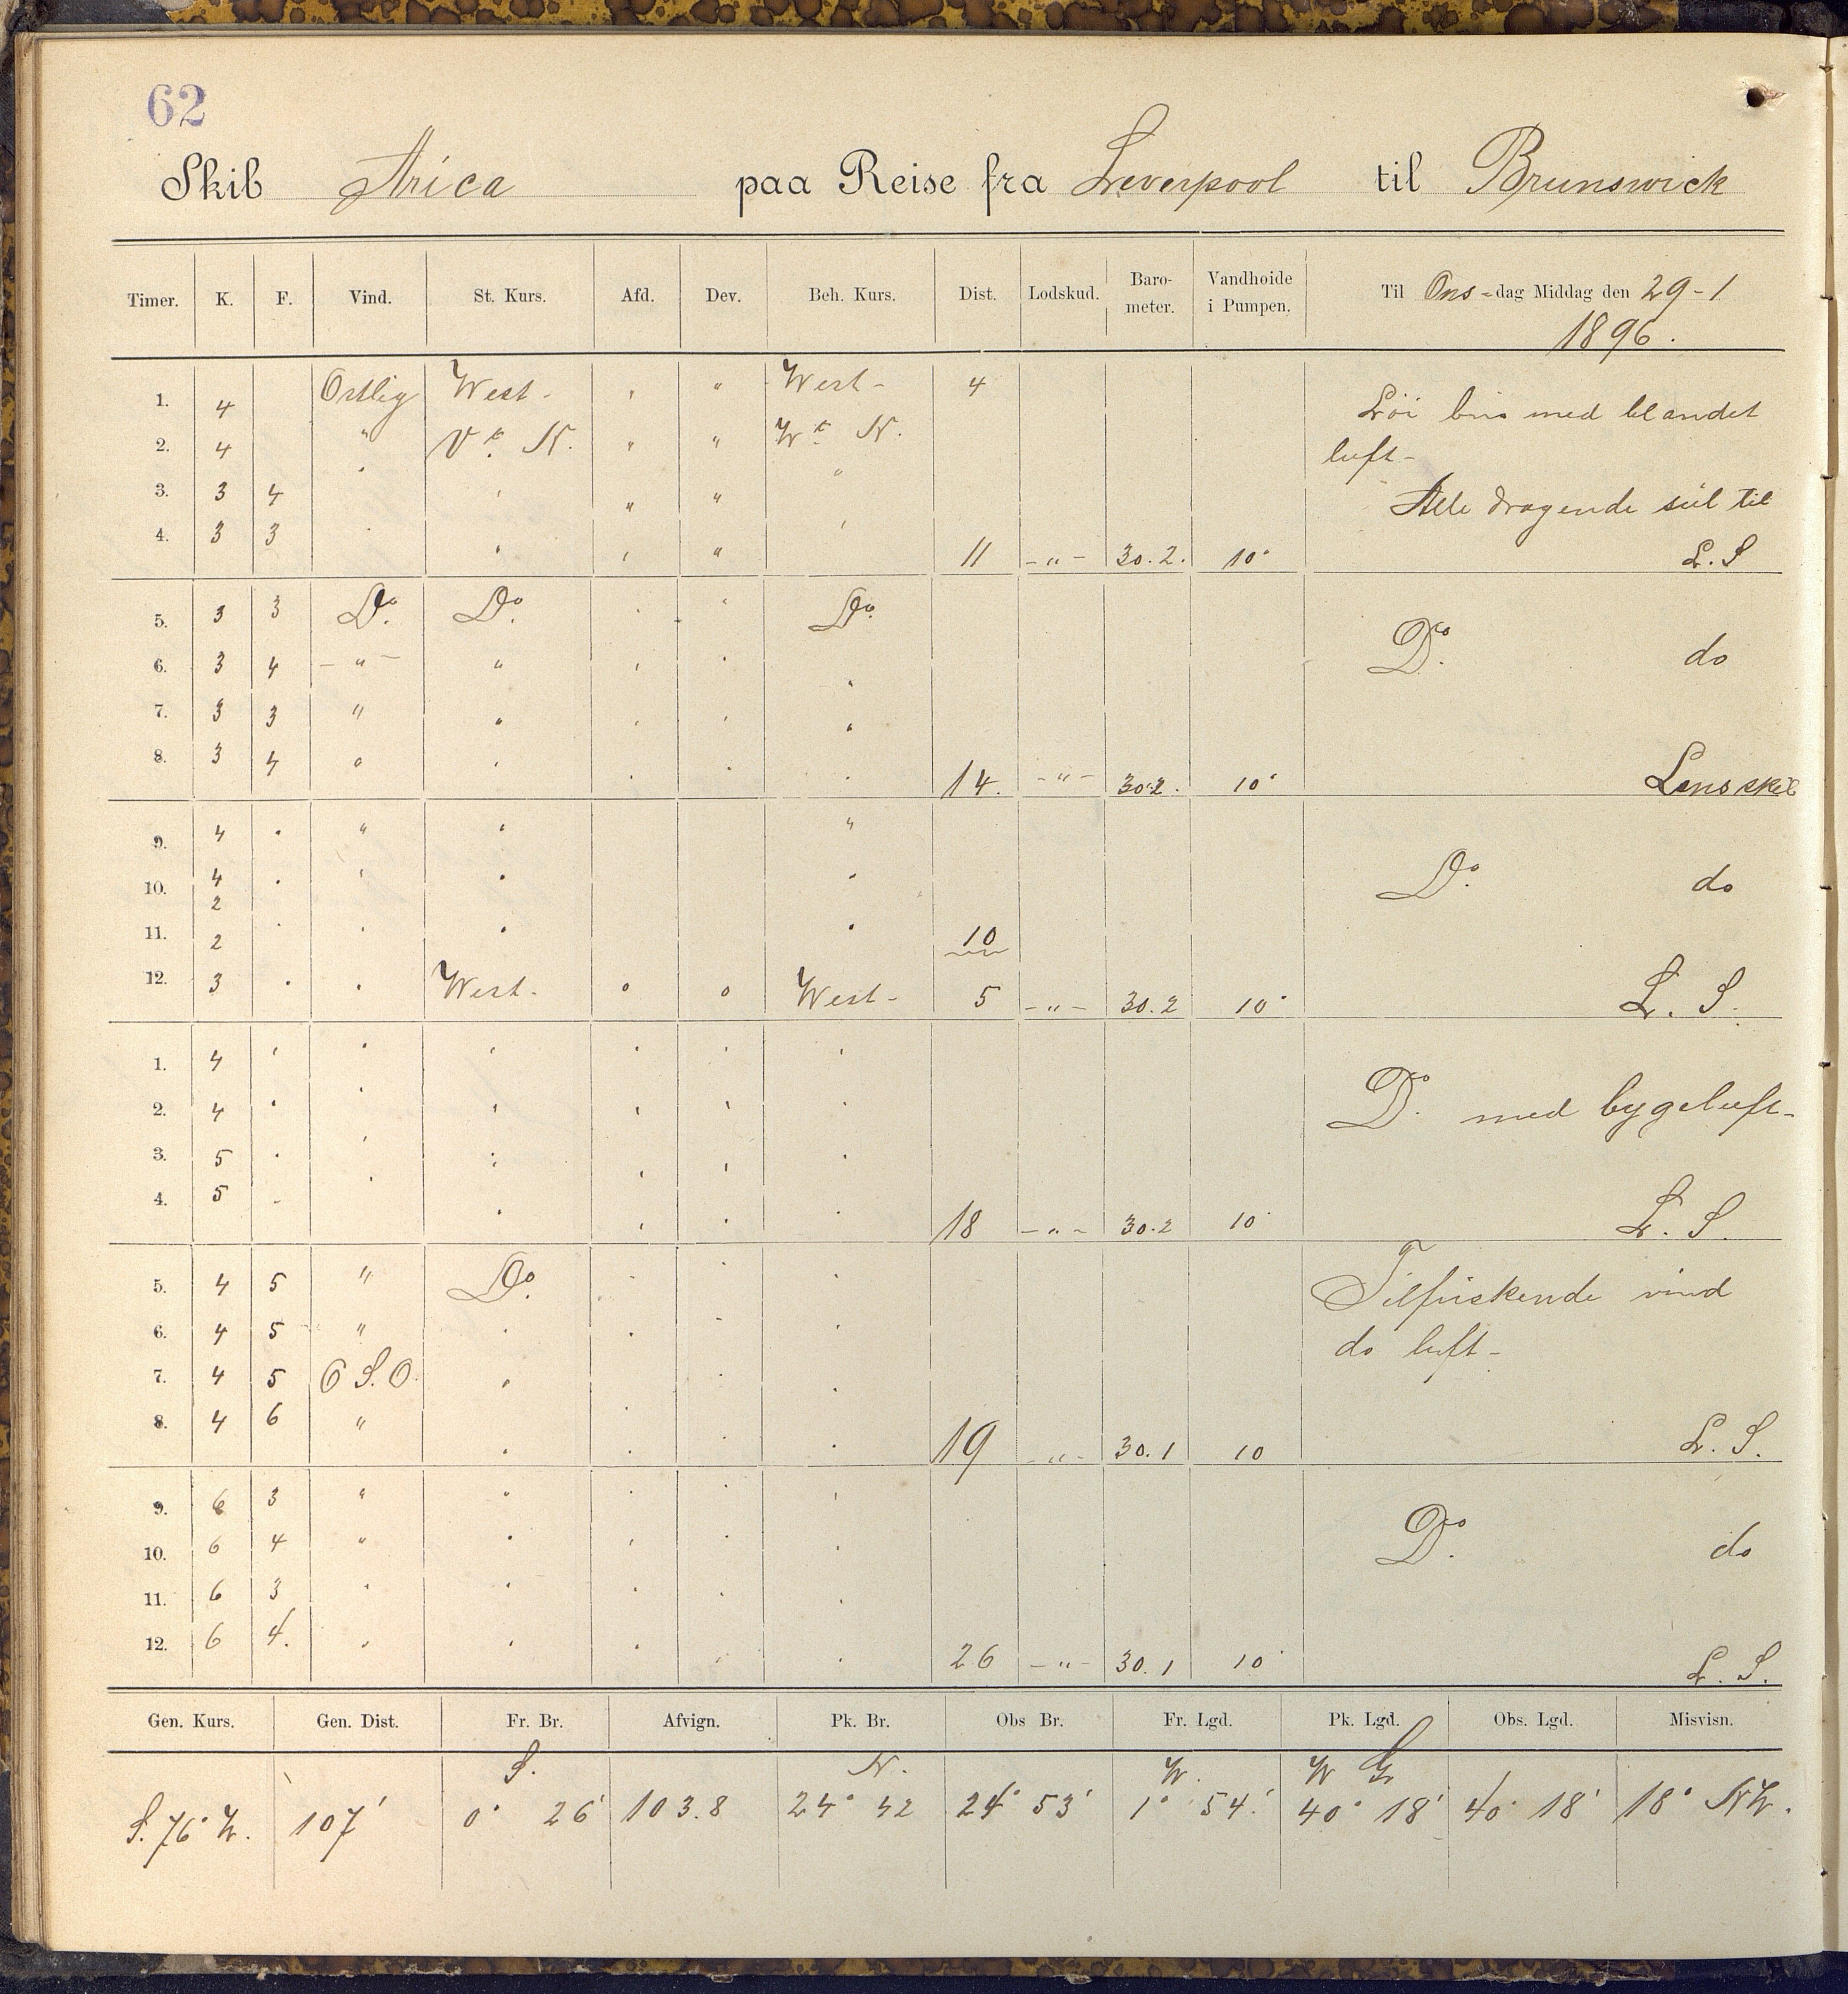 62
Skib Arica paa Reise fra Leverpool til Brunswick
Timer. K. F. Vind. St. Kurs. Afd. Dev. Beh. Kurs. Dist. Lodskud. Baro-meter. Vandhoide i Pumpen. Til Ons-dag Middag den 29-1
1896.
1. 4 Ostlig West - " " West - 4 Löi bris med blandet
2. 4 " Vt. N. " " Wt. N. luft -
3. 3 4 " " " " " Alle dragende seil til
4. 3 3 " " " " " 11 - " - 30.2. 10" L. S
5. 3 3 Do. Do. " " Do. Do. do
6. 3 4 - " - " " " "
7. 3 3 " " " " "
8. 3 4 " " " " " 14. - " - 30.2. 10" Lens skib
9. 4 " " " "
10. 4 " " " " Do. do
2
11. 2 " " " " 10
12. 3 " " West - " " West - 5 - " - 30.2 10" L. S.
1. 4 " " " " " "
2. 4 " " " " " " Do. med bygeluft -
3. 5 " " " " " "
4. 5 - " " " " " 18 - " - 30.2 10" L. S.
5. 4 5 " Do. " " " Tilfriskende vind
6. 4 5 " " " " " do luft -
7. 4 5 O S. O. " " "
8. 4 6 " " " " " 19 - " - 30.1 10 L. S.
9. 6 3 " " " " "
10. 6 4 " " " " " Do. do
11. 6 3 " " " " "
12. 6 4. " " " " " 26 - " - 30.1 10" L. S.
Gen. Kurs. Gen. Dist. Fr. Br. Afvign. Pk. Br. Obs Br. Fr. Lgd. Pk. Lgd. Obs. Lgd. Misvisn.
S. N. W. W G
S. 76° W. 107' 0° 26' 103.8 24° 42 24° 53' 1° 54.' 40° 18' 40° 18' 18° NW.